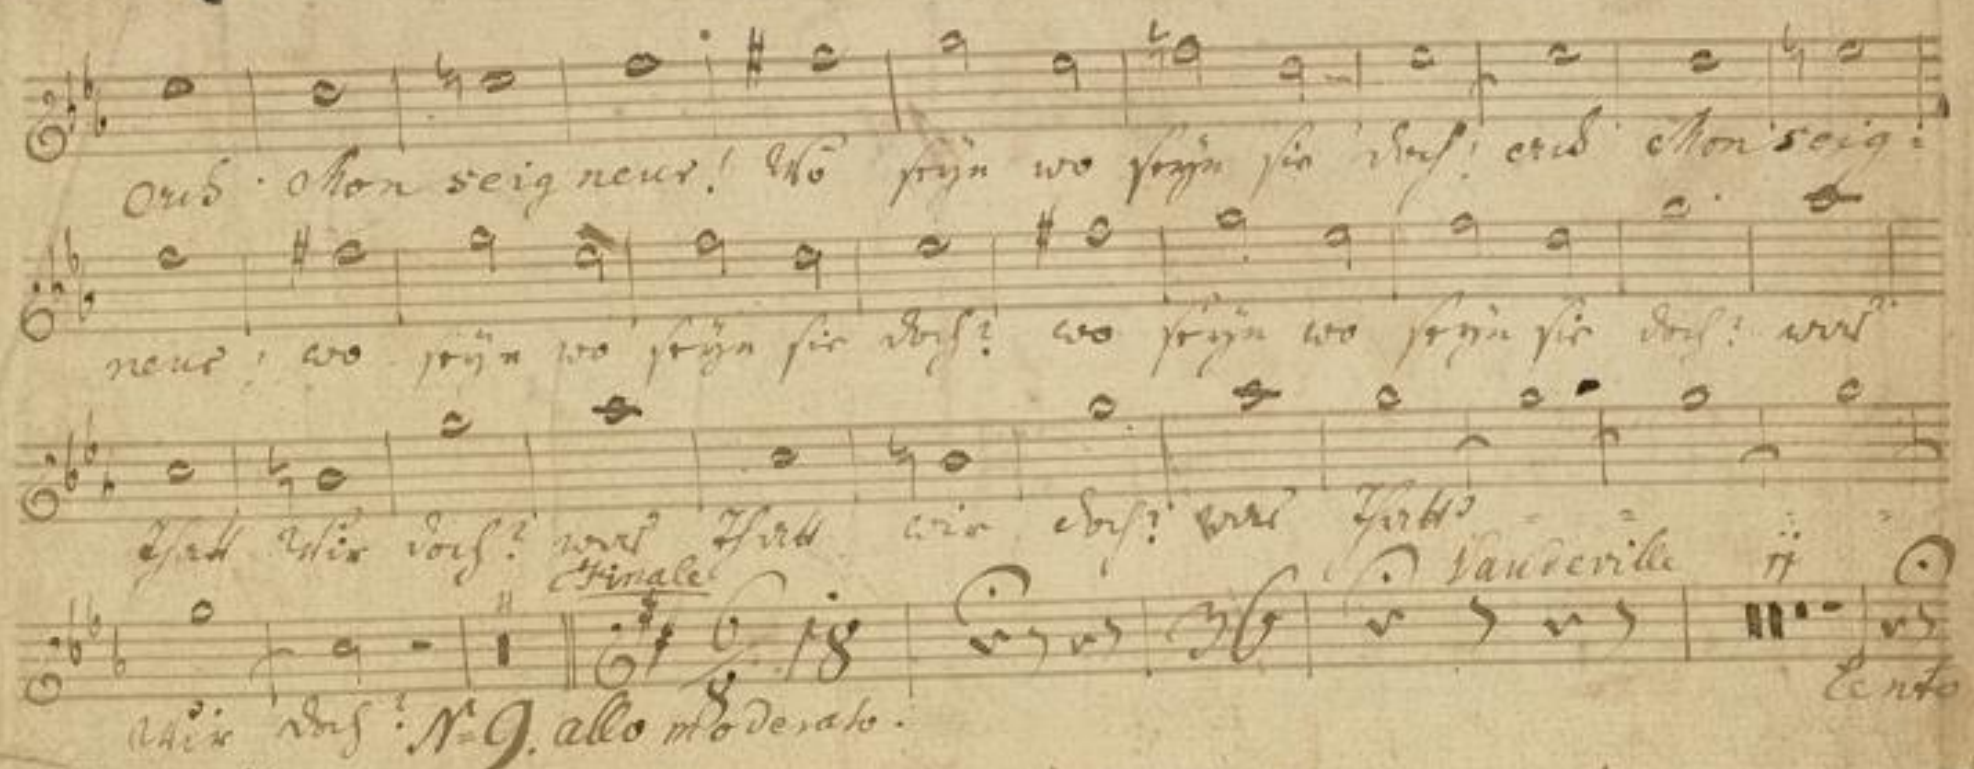 Monseigneur! Wo seÿn wo seÿn sie doch! Monseig:
neur! wo seÿn wo seÿn sie doch? wo seÿn wo seÿn sie doch? was
Thatt Wir doch? was Thatt wir doch? was Thatt
Finale
Vaudeville
6/8 18 36
Lento
Wir doch? N=9. allo moderato.